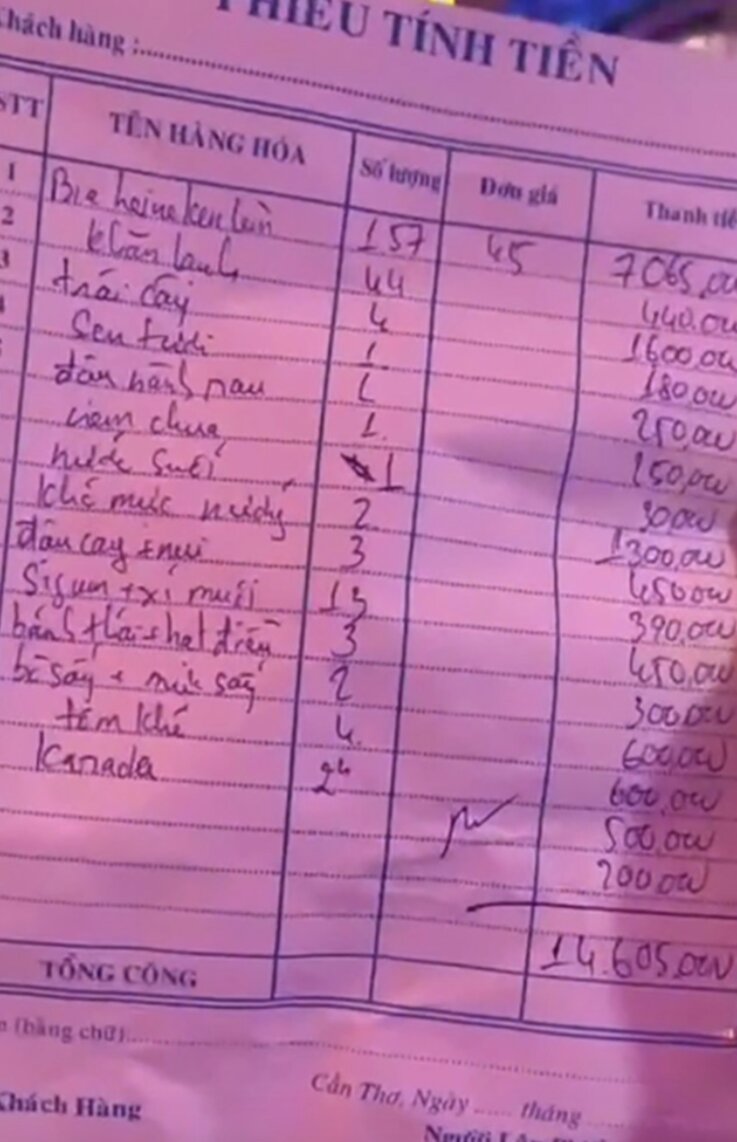 PHIẾU TÍNH TIỀN
Khách hàng :
STT TÊN HÀNG HÓA Số lượng Đơn giá Thanh tiề
1 Bia heineken lùn 157 45 7065.000
2 khăn lanh 44 440.000
3 trái cây 4 1600.000
4 Sen tươi 1 180.000
đâu hành nau 250.000
1 250.000
nước suối 1 30000
khô mực nướg 2 1300.000
đâu cay + nui 3 450000
Sigum + xí muối 13 390.000
bánh thái + hạt điều 3 450.000
bò sấy + mực sấy 2 300000
tôm khô 4 600.000
Kanada 2 600.000
500.000
200.000
14.605.000
TỔNG CỘNG
(bằng chữ)
Cần Thơ, Ngày ...... tháng
Khách Hàng